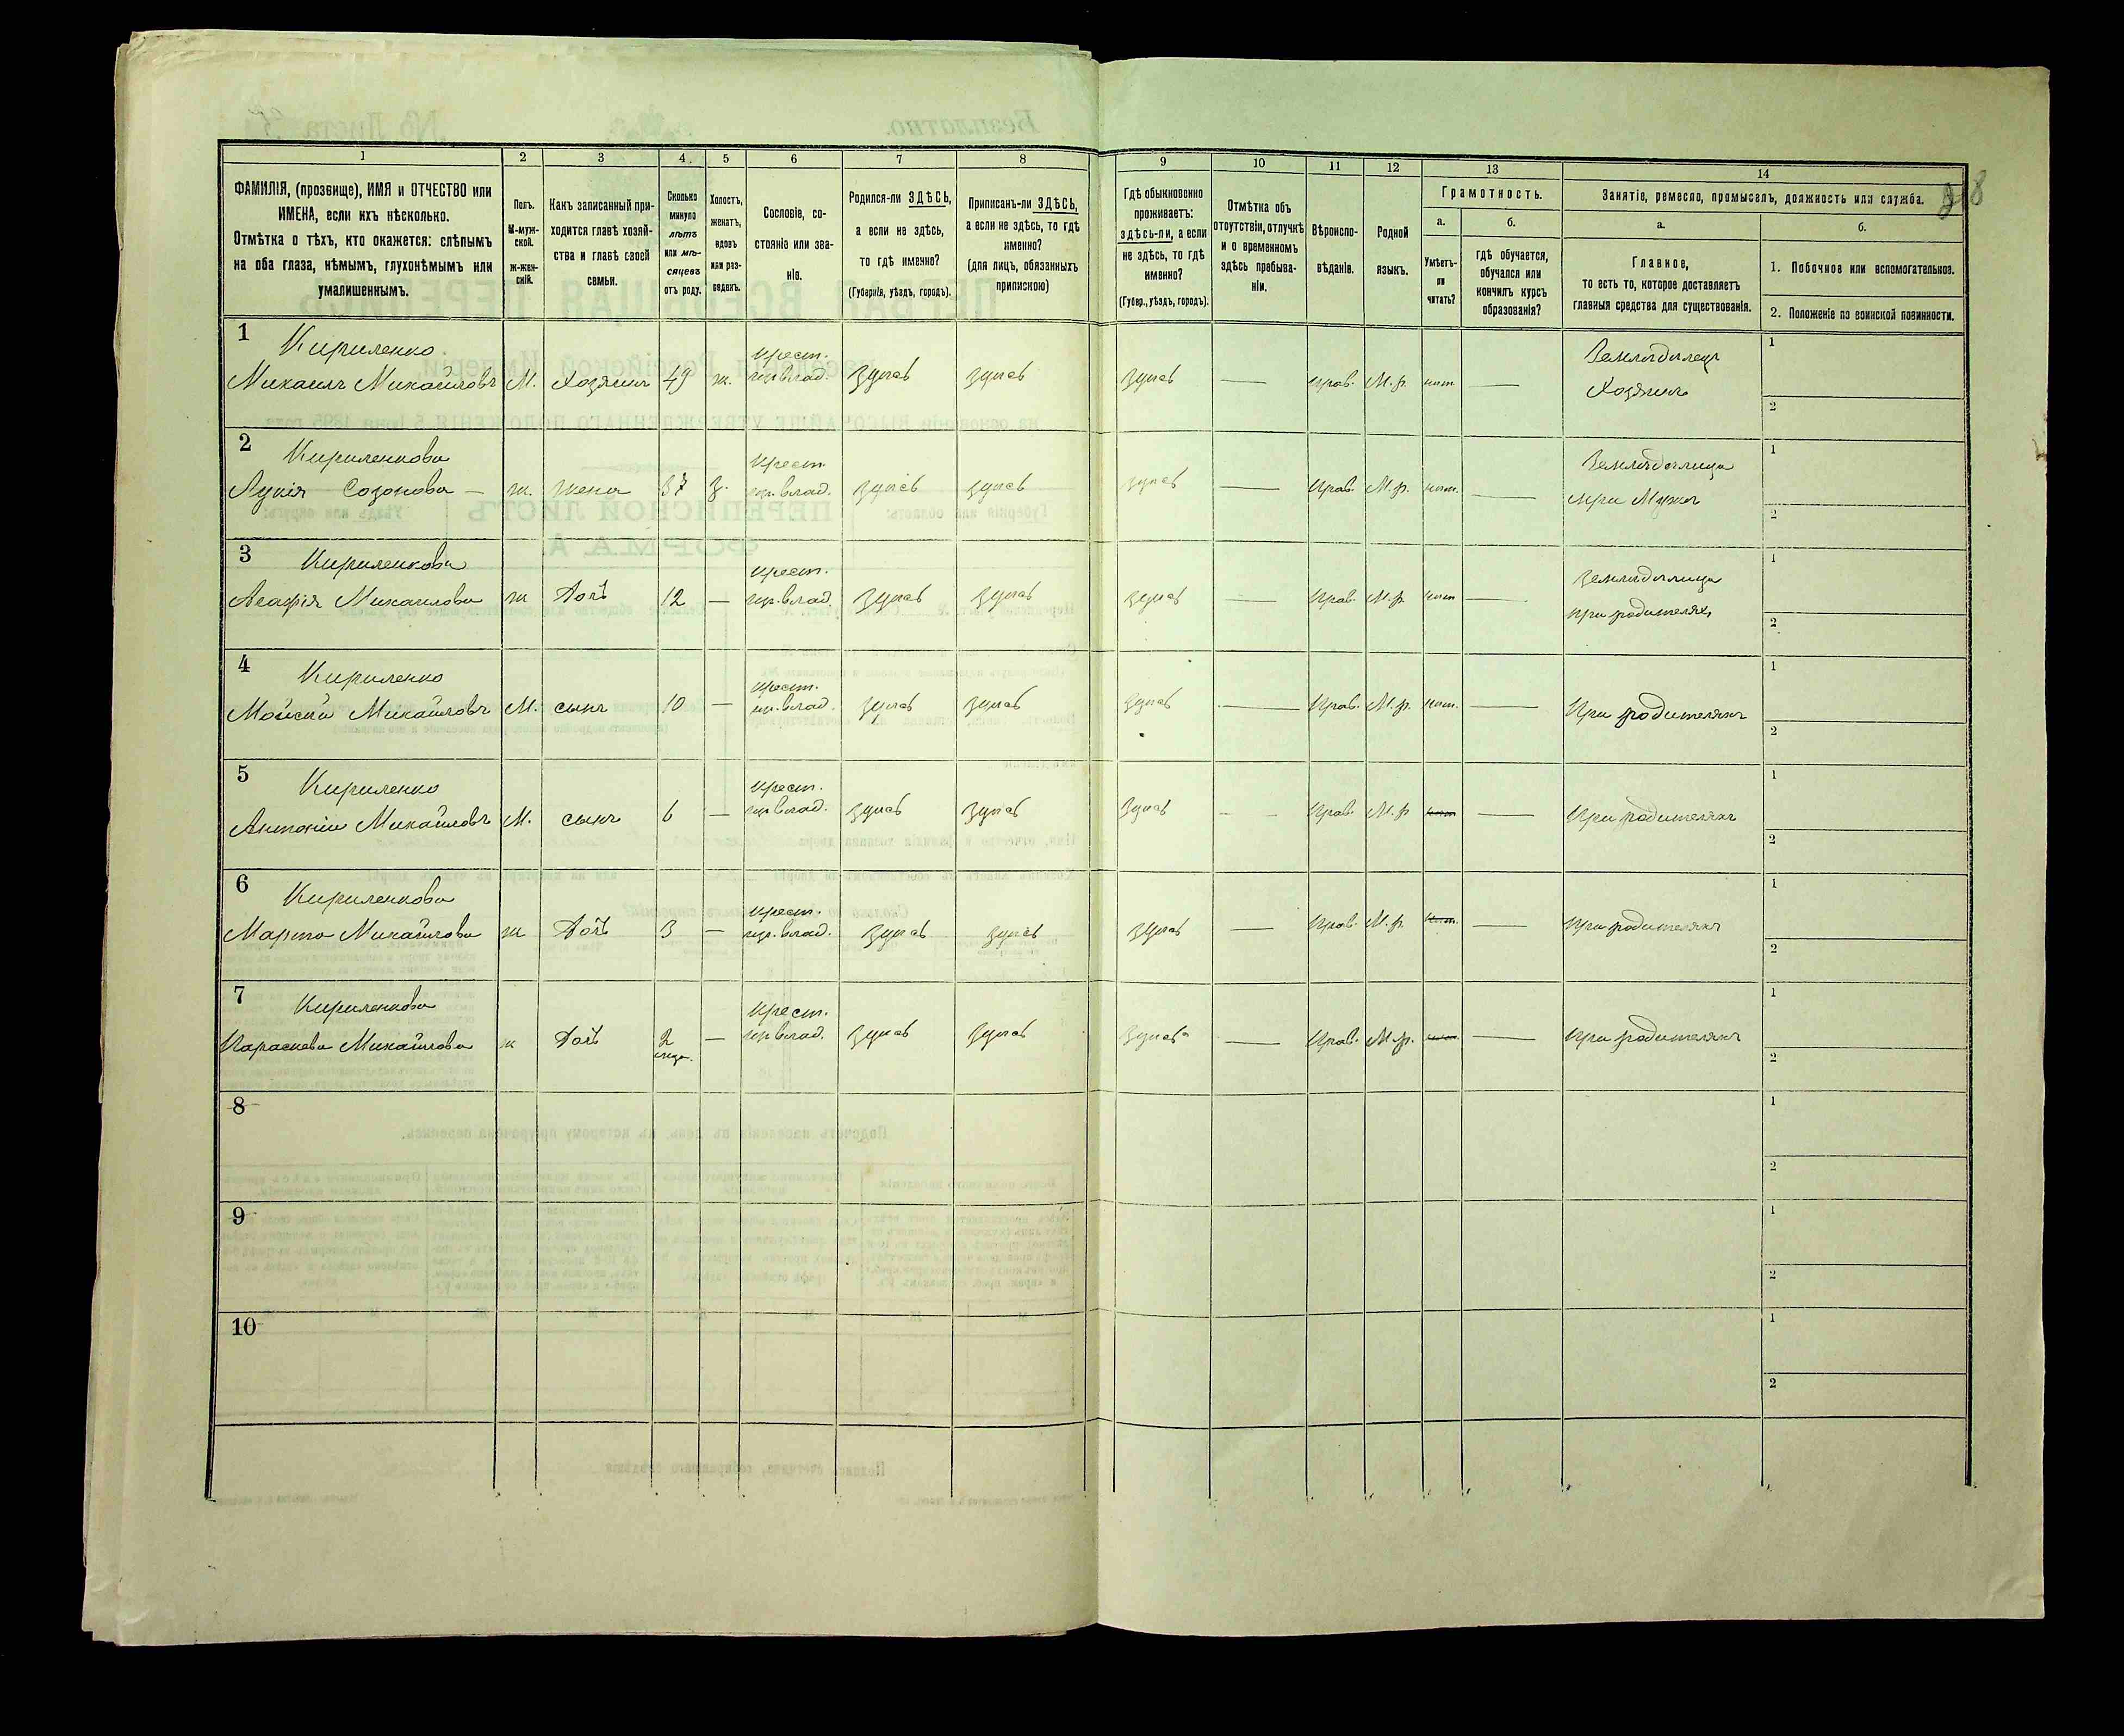 1 2 3 4 5 6 7 8 9 10 11 12 13 14
ФАМИЛІЯ, (прозвище), ИМЯ и ОТЧЕСТВО или
ИМЕНА, если ихъ нѣсколько.
Отмѣтка о тѣхъ, кто окажется: слѣпымъ
на оба глаза, нѣмымъ, глухонѣмымъ или
умалишеннымъ.
Полъ.
М-муж-
ской.
ж-жен-
скій.
Какъ записанный при-
ходится главѣ хозяй-
ства и главѣ своей
семьи.
Сколько
минуло
лѣтъ
или мѣ-
сяцевъ
отъ роду.
Холостъ,
женатъ,
вдовъ
или раз-
веденъ.
Сословіе, со-
стояніе или зва-
ніе.
Родился-ли ЗДѢСЬ,
а если не здѣсь,
то гдѣ именно?
(Губернія, уѣздъ, городъ).
Приписанъ-ли ЗДѢСЬ,
а если не здѣсь, то гдѣ
именно?
(для лицъ, обязанныхъ
припискою)
Гдѣ обыкновенно
проживаетъ:
здѣсь-ли, а если
не здѣсь, то гдѣ
именно?
(Губер., уѣздъ, городъ).
Отмѣтка объ
отсутствіи, отлучкѣ
и о временномъ
здѣсь пребыва-
ніи.
Вѣроиспо-
вѣданіе.
Родной
языкъ.
Грамотность.
а. б.
Умѣетъ-
ли
читать?
гдѣ обучается,
обучался или
кончилъ курсъ
образованія?
Занятіе, ремесло, промыселъ, должность или служба.
а. б.
Главное,
то есть то, которое доставляетъ
главныя средства для существованія.
1. Побочное или вспомогательное.
2. Положеніе по воинской повинности.
1 Кириленко
Михаилъ Михайловъ М. Хозяинъ 49 ж. Крест. влад. здѣсь здѣсь здѣсь — Прав. М. р. нѣт. — Земледѣлецъ
Хозяинъ
1
2
2 Кириленкова
Лукія Созонова — ж. жена 37 з. Крест. влад. здѣсь здѣсь здѣсь — Прав. М. р. нѣт. — Земледѣлица
при Мужѣ
1
2
3 Кириленкова
Агафія Михаилова ж Дочь 12 — Крест. влад. здѣсь здѣсь здѣсь — Прав. М. р. нѣт — Земледѣлица
при родителяхъ
1
2
4 Кириленко
Мойсей Михайловъ М. сынъ 10 — Крест. влад. здѣсь здѣсь здѣсь — Прав. М. р. нѣт. — При родителяхъ
1
2
5 Кириленко
Антоній Михайловъ М. сынъ 6 — Крест. влад. здѣсь здѣсь здѣсь — Прав. М. р — При родителяхъ
1
2
6 Кириленкова
Марта Михайлова ж Дочь 3 — Крест. влад. здѣсь здѣсь здѣсь — Прав. М. р. — При родителяхъ
1
2
7 Кириленкова
Параскева Михайлова ж Дочь 2 — Крест. влад. здѣсь здѣсь здѣсь — Прав. М. р. — При родителяхъ
1
2
8
1
2
9
1
2
10
1
2